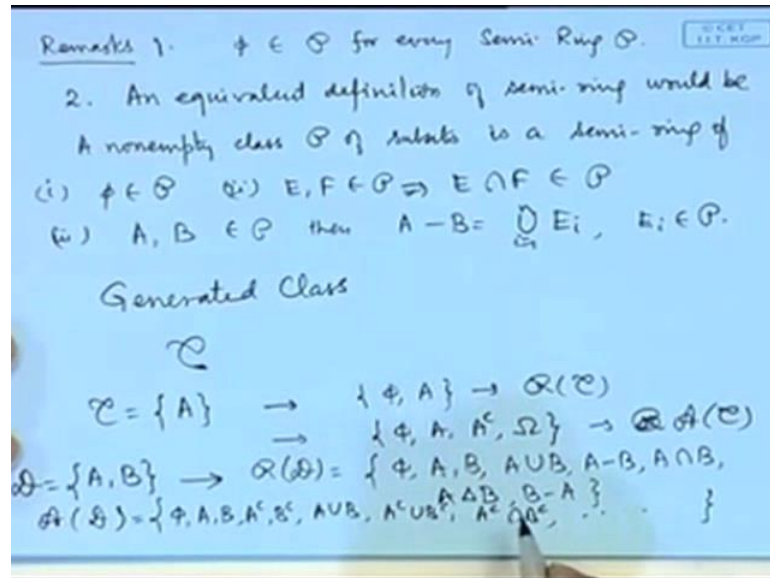 Remarks 1. ϕ ∈ 𝒫 for every Semi-Ring 𝒫.
© CET
I.I.T. KGP
2. An equivalent definition of semi-ring would be
A nonempty class 𝒫 of subsets is a semi-ring if
(i) ϕ ∈ 𝒫 (ii) E, F ∈ 𝒫 ⇒ E ∩ F ∈ 𝒫
(iii) A, B ∈ 𝒫 then A − B = ∪ Eᵢ, Eᵢ ∈ 𝒫.
Generated Class
𝒞
𝒞 = {A} → {ϕ, A} → ℛ(𝒞)
→ {ϕ, A, Aᶜ, Ω} → 𝒜(𝒞)
𝒟 = {A, B} → ℛ(𝒟) = {ϕ, A, B, A∪B, A−B, A∩B,
A Δ B, B−A }
𝒜(𝒟) = {ϕ, A, B, Aᶜ, Bᶜ, A∪B, Aᶜ∪Bᶜ, Aᶜ∩Bᶜ, . . . . }